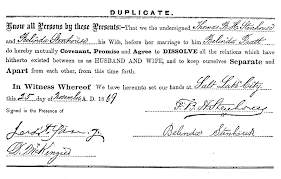 DUPLICATE.
Know all Persons by these Presents:—That we the undersigned Thomas B. H. Stenhouse
and Belinda Stenhouse his Wife, before her marriage to him Belinda Pratt
do hereby mutually Covenant, Promise and Agree to DISSOLVE all the relations which have
hitherto existed between us as HUSBAND AND WIFE, and to keep ourselves Separate and
Apart from each other, from this time forth.
In Witness Whereof We have hereunto set our hands at Salt Lake City
this 25 day of A. D. 1869
Signed in presence of
T. B. H. Stenhouse
Belinda Stenhouse
D. McKenzie